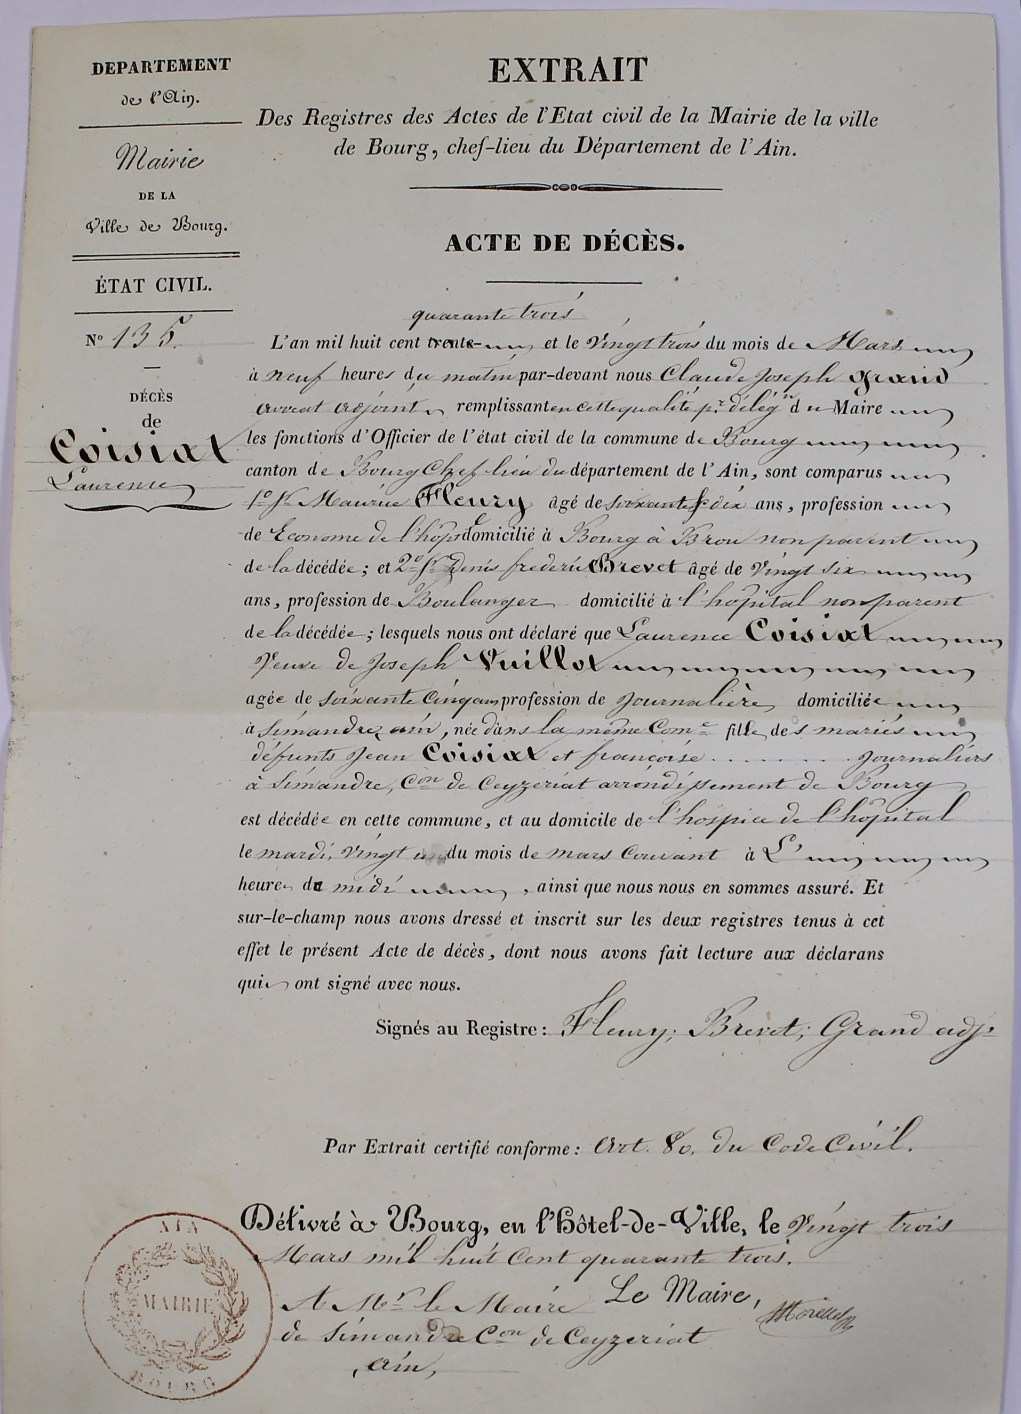 DEPARTEMENT
de l'Ain.
Mairie
DE LA
Ville de Bourg.
ÉTAT CIVIL.
No 135.
DÉCÈS
de
Coisiat
Laurence
EXTRAIT
Des Registres des Actes de l'Etat civil de la Mairie de la ville
de Bourg, chef-lieu du Département de l'Ain.
ACTE DE DÉCÈS.
quarante trois
L'an mil huit cent trente- et le Vingt trois du mois de Mars
à neuf heures du matin par-devant nous Claude Joseph Grand
avocat adjoint remplissant en cette qualité pr. délégon du Maire
les fonctions d'Officier de l'état civil de la commune de Bourg
canton de Bourg Chef lieu du département de l'Ain, sont comparus
1o Sr Maurice Fleury âgé de soixante & dix ans, profession
de Econome de l'hopl domicilié à Bourg à Brou non parent
de la décédée; et 2o Sr Denis frederic Brevet âgé de Vingt six
ans, profession de Boulanger domicilié à l'hopital non parent
de la décédée; lesquels nous ont déclaré que Laurence Coisiat
Veuve de Joseph Vuillot
agée de soixante cinq ans profession de Journalière domiciliée
à Simandre ain, née dans la même Come fille des mariés
défunts Jean Coisiat et françoise ........... Journaliers
à Simandre, Con de Ceyzeriat arrondissement de Bourg
est décédée en cette commune, et au domicile de l'hospice de l'hôpital
le mardi, Vingt un du mois de mars Courant à L'
heure de midi, ainsi que nous nous en sommes assuré. Et
sur-le-champ nous avons dressé et inscrit sur les deux registres tenus à cet
effet le présent Acte de décès, dont nous avons fait lecture aux déclarans
qui ont signé avec nous.
Signés au Registre: Fleury; Brevet; Grand adjt
Par Extrait certifié conforme: Art. 80. du Code Civil.
Délivré à Bourg, en l'Hôtel-de-Ville, le Vingt trois
Mars mil huit Cent quarante trois.
A Mr le Maire Le Maire,
de Simandre Con de Ceyzeriat
Ain,
AIN
MAIRIE
BOURG